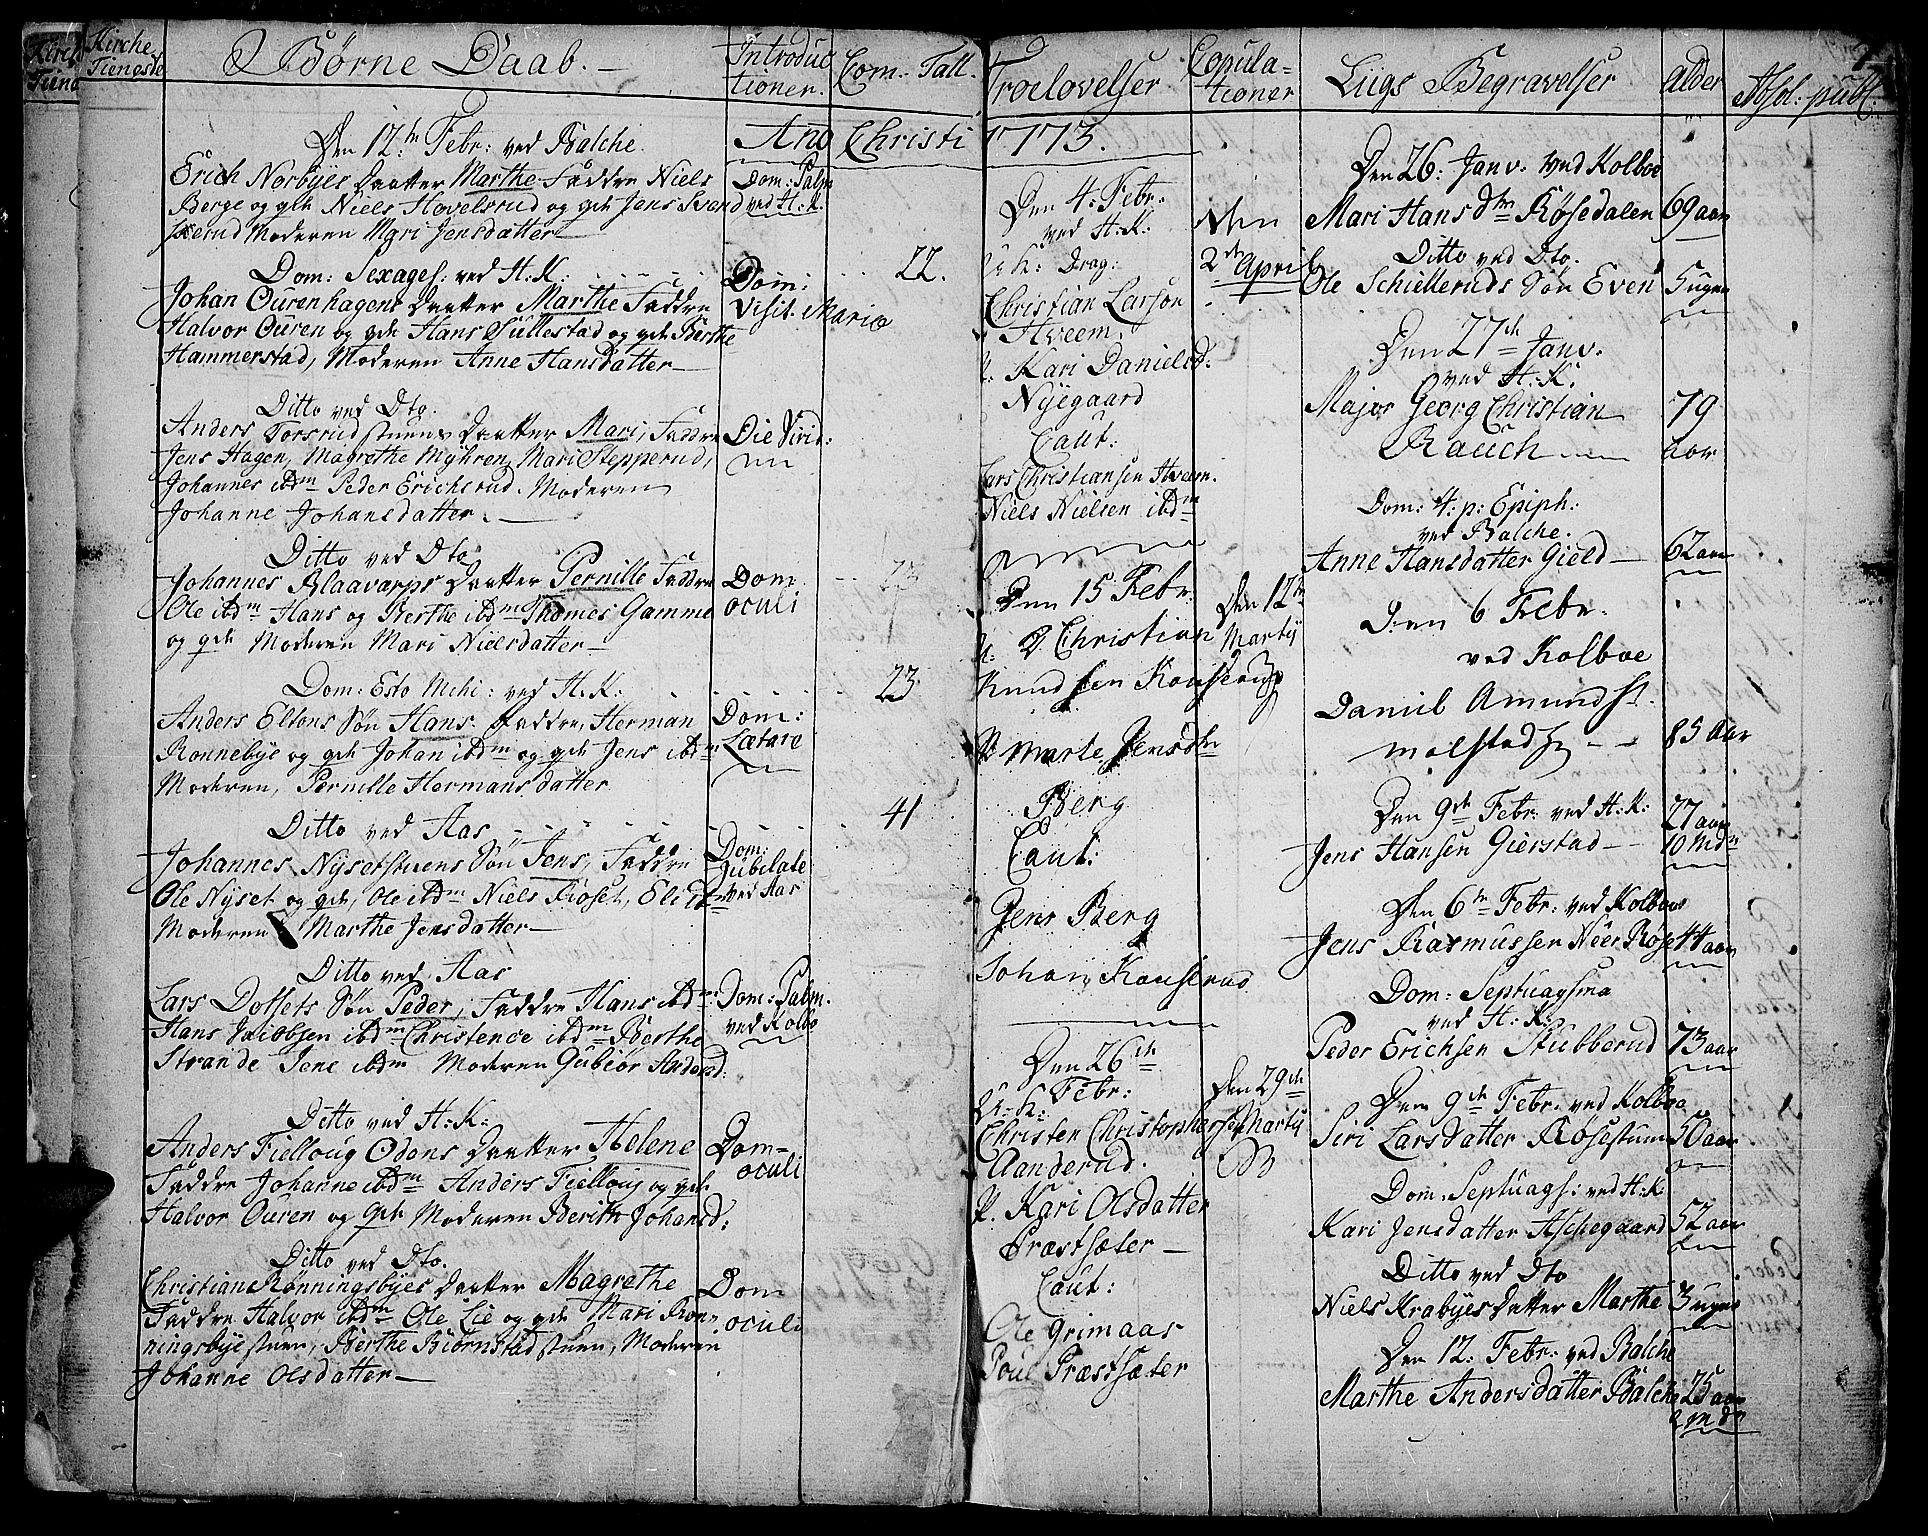 Kirche
Tieneste
Børne Daab.
Introduc
tioner.
Com: Tall.
Troelovelser
Copula-
tioner
Liigs Begravelser
Alder
Absol: publ:
Ano Christi 1773.
Den 12te Febr: ved Balche.
Erich Norbyes Daatter Marthe Faddre Niels
Berge og gvk Niels Hovelsrud og gvk Jens
Moderen Mari Jensdatter
Dom: Palm
ved H:K:
Dom: Sexages: ved H:K:
22.
Johan Ourenhagens Daatter Marthe Faddre
Halvor Ouren og gvk Hans Sullestad og gvk Berthe
Hammerstad, Moderen Anne Hansdatter
Dom:
Visit. Mariæ
Ditto ved Dto.
Anders Torsrudstuens Daatter Mari, Faddre
Jens Hagen, Magrethe Myhren, Mari Stepperud,
Johannes ibdm Peder Erichsrud. Moderen
Johanne Johansdatter.
Die Virid:
Ditto ved Dto
Johannes Blaavarps Daatter Pernille Faddre
Ole ibdm Hans og Berthe ibdm Thomes Gamme
og gvk Moderen Mari Nielsdatter
Dom.
oculi
Dom: Esto Mihi: ved H:K:
23
Anders Eltons Søn Hans. Faddre, Herman
Ronnebye og gvk Johan ibdm og gvk Jens ibdm
Moderen, Pernille Hermansdatter
Dom:
Lætare
Ditto ved Aas
41
Johannes Nysetstuens Søn Jens, Faddre
Ole Nyset og gvk, Ole ibdm Niels Fioset, Eli ibdm
Moderen Marthe Jensdatter
Dom:
Jubilate
ved Aas
Ditto ved Aas
Lars Dotsets Søn Peder, Faddre Hans ibdm
Hans Jacobsen ibdm Christence ibdm Berthe
Strande Jene ibdm Moderen Gubiør Andersd:
Dom: Palm.
ved Kolbo
Ditto ved H:K:
Anders Fielloug Odens Daatter Helene
Faddre Johanne ibdm Anders Fielloug og gvk
Halvor Ouren og gvk Moderen Berith Johansd:
Dom-
oculi
Ditto ved Dto.
Christian Rønningsbyes Daatter Magrethe
Faddre Halvor ibdm Ole Lie og gvk Mari Røn-
ningsbyestuen, Berthe Biørnstadstuen, Moderen
Johanne Olsdatter
Dom
oculi
Den 4. Febr.
ved H:K:
U:K: Drag:
Christian Larson
Hveem.
P. Kari Danielsd:
Nyegaard
Caut:
Lars Christiansen Hveem.
Niels Nielsen ibdm
Den
2den April
Den 15 Febr.
Christian
Knudsen Kauserud
P. Marte Jensdtr
Berg
Caut:
Jens Berg
Johan Kauserud
Den 12te
Martij
Den 26de
Febr:
U:K:
Christen Christophersen
Aanderud.
P. Kari Olsdatter
Præstsæter
Caut:
Ole Grimaas
Poul Præstsæter
Den 29de
Martij
Den 26: Janv. ved Kolboe
Mari Hansdtr Røsedalen 69 aar
Ditto ved Dto.
Ole Schiellerruds Søn Even 5 uger
Den 27de Janv.
ved H:K:
Major Georg Christian 79
Rauch aar
Dom: 4: p: Epiph:
ved Balche.
Anne Hansdatter Gield 62 aar
Den 6 Febr.
ved Kolboe
Daniel Amunds.
Molstad 85 Aar
Den 9de Febr. ved H:K:
Jens Hansen Gierstad 27 aar
10 Mdr
Den 6te Febr: ved Kolboe
Jens Rasmussen Neer Røse 44 aar
Dom: Septuagsma
ved H:K:
Peder Erichsen Stubberud 73 aar
Den 9de Febr. ved Kolboe
Siri Larsdatter Røsestuen 50 aar
Dom: Septuags: ved H:K
Kari Jensdatter Aschegaard 52 aar
Ditto ved Dto
Niels Krabyes Datter Marthe 3 uger
Den 12: Febr: ved Balche
Marthe Andersdatter Balche 25 aar
2 Mdr